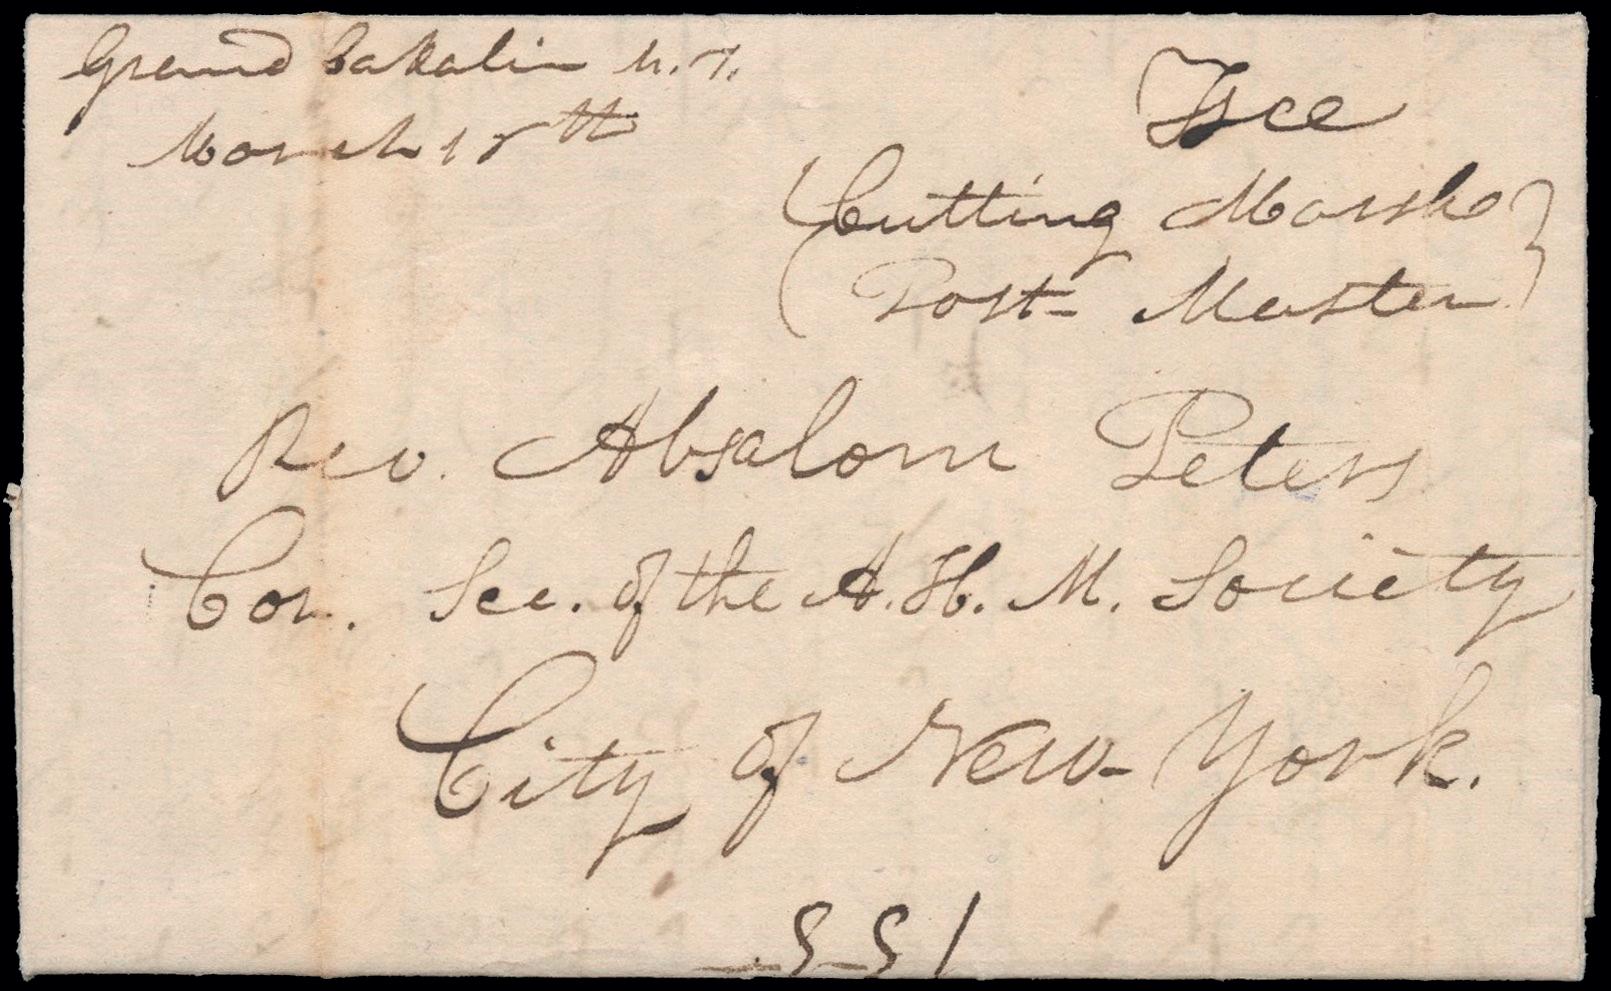 Grand Cakalin M. T.
March 18th
Free
Cutting Marsh
Post Master
Rev. Absalom Peters
Cor. Sec. of the A. H. M. Society
City of New-York.